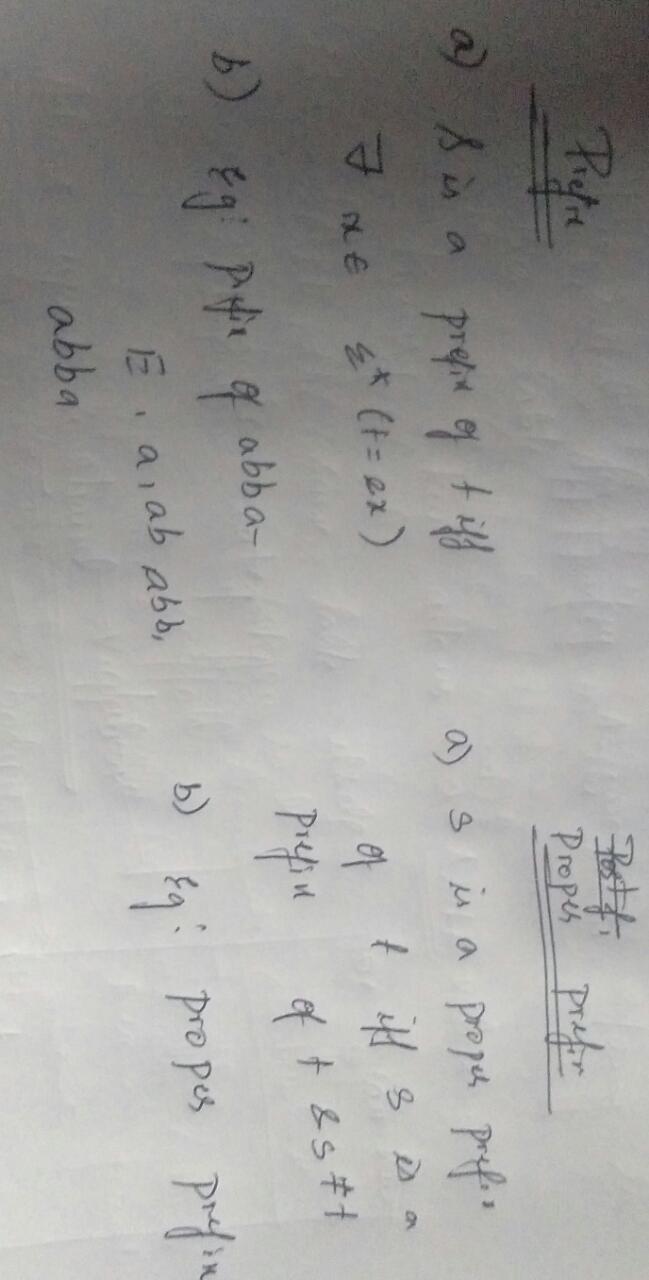 Prefix
a) S is a prefix of t iff
∃ x ∈ Σ* (t = sx)
b) Eg: Prefix of abba-
E, a, ab abb,
abba
Postf.
Proper prefix
a) s is a proper prefix
of t iff s is a
prefix of t & s ≠ t
b) Eg: proper prefix